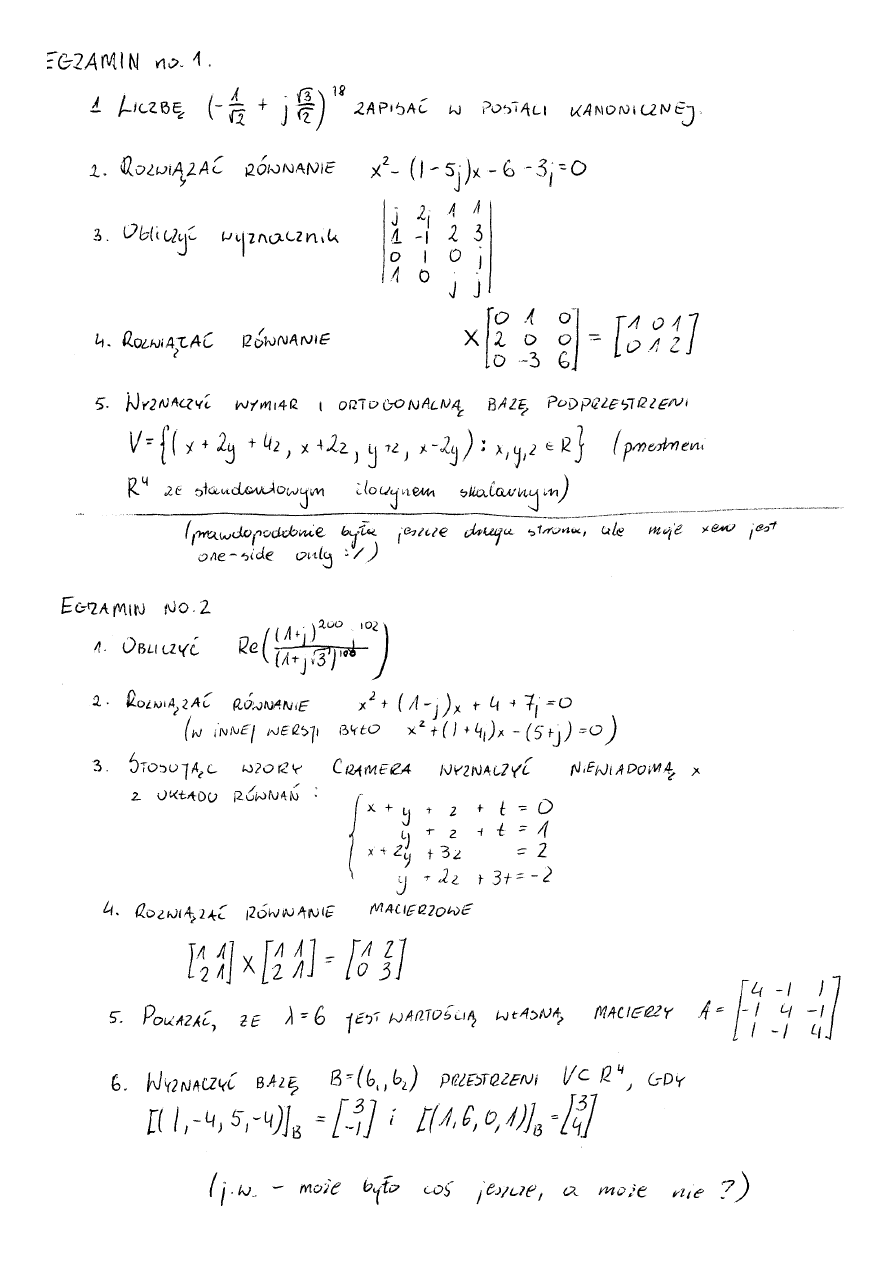 EGZAMIN no. 1.
1 LICZBĘ (-1/√2 + j √3/√2)^18 ZAPISAĆ W POSTALI KANONICZNEJ.
2. ROZWIĄZAĆ RÓWNANIE x² - (1-5j)x - 6 - 3j = 0
3. Obliczyć wyznacznik |j 2j 1 1|
|1 -1 2 3|
|0 1 0 j|
|1 0 j j|
4. ROZWIĄZAĆ RÓWNANIE X [0 1 0; 2 0 0; 0 -3 6] = [1 0 1; 0 1 2]
5. WYZNACZYĆ WYMIAR I ORTOGONALNĄ BAZĘ PODPRZESTRZENI
V = {(x + 2y + 4z, x + 2z, y + z, x - 2y) : x, y, z ∈ R} (przestrzeni
R⁴ ze standardowym iloczynem skalarnym)
(prawdopodobnie była jeszcze druga strona, ale moje xero jest
one-side only :/)
EGZAMIN NO. 2
1. OBLICZYĆ Re((1+j)^200 / (1+j√3)
2. ROZWIĄZAĆ RÓWNANIE x² + (1-j)x + 4 + 7j = 0
(W INNEJ WERSJI BYŁO x² + (1+4j)x - (5+j) = 0)
3. STOSUJĄC WZORY CRAMERA WYZNACZYĆ NIEWIADOMĄ x
Z UKŁADU RÓWNAŃ :
x + y + z + t = 0
y + z + t = 1
x + 2y + 3z = 2
y + 2z + 3t = -2
4. ROZWIĄZAĆ RÓWNANIE MACIERZOWE
[1 1; 2 1] X [1 1; 2 1] = [1 2; 0 3]
5. POKAZAĆ, ŻE λ = 6 JEST WARTOŚCIĄ WŁASNĄ MACIERZY A = [4 -1 1; -1 4 -1; 1 -1 4]
6. WYZNACZYĆ BAZĘ B = (b₁, b₂) PRZESTRZENI V ⊂ R⁴, GDY
[(1, -4, 5, -4)]_B = [3; -1] i [(1, 6, 0, 1)]_B = [3; 4]
(j.w. - może było coś jeszcze, a może nie ?)